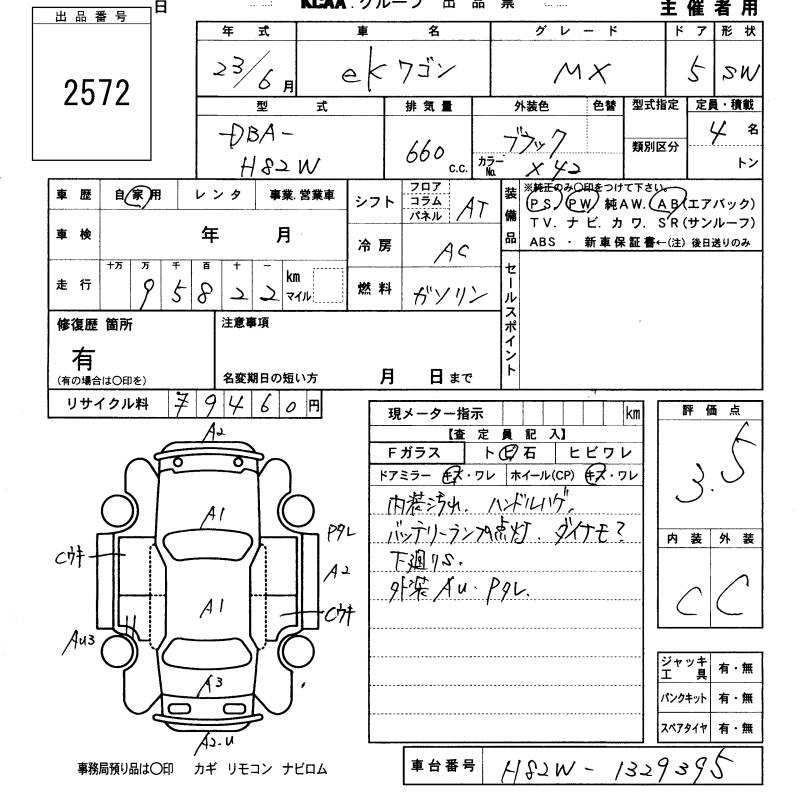 日 KCAA.グループ 出品票 主催者用
出品番号
2572
年式 車名 グレード ドア 形状
23/6月 eKワゴン MX 5 SW
型式 排気量 外装色 色替 型式指定 定員・積載
DBA-
H82W
660 c.c.
ブラック
カラーNo. X42
類別区分
4名
トン
車歴 自家用 レンタ 事業.営業車
車検 年 月
走行 十万 万 千 百 十 一
9 5 8 2 2 km マイル
シフト フロア コラム パネル AT
冷房 AC
燃料 ガソリン
装備品
※純正のみ〇印をつけて下さい。
PS. PW 純AW. AB(エアバック)
TV. ナビ. カワ. SR(サンルーフ)
ABS ・ 新車保証書←(注) 後日送りのみ
セールスポイント
修復歴 箇所
有
(有の場合は〇印を)
注意事項
名変期日の短い方 月 日まで
リサイクル料 79460円
現メーター指示 km
【査定員記入】
Fガラス ト石 ヒビワレ
ドアミラー キズ・ワレ ホイール(CP) キズ・ワレ
内装汚れ. ハンドルハゲ.
バッテリーランプ点灯. ダイナモ?
下廻りS.
外装AU.Pタレ.
評価点
3.5
内装 外装
C C
ジャッキ工具 有・無
パンクキット 有・無
スペアタイヤ 有・無
A2
A1
Pタレ
Cウキ
A2
A1
Cウキ
AU3
A3
A2-U
事務局預り品は〇印 カギ リモコン ナビロム
車台番号 H82W-1329395